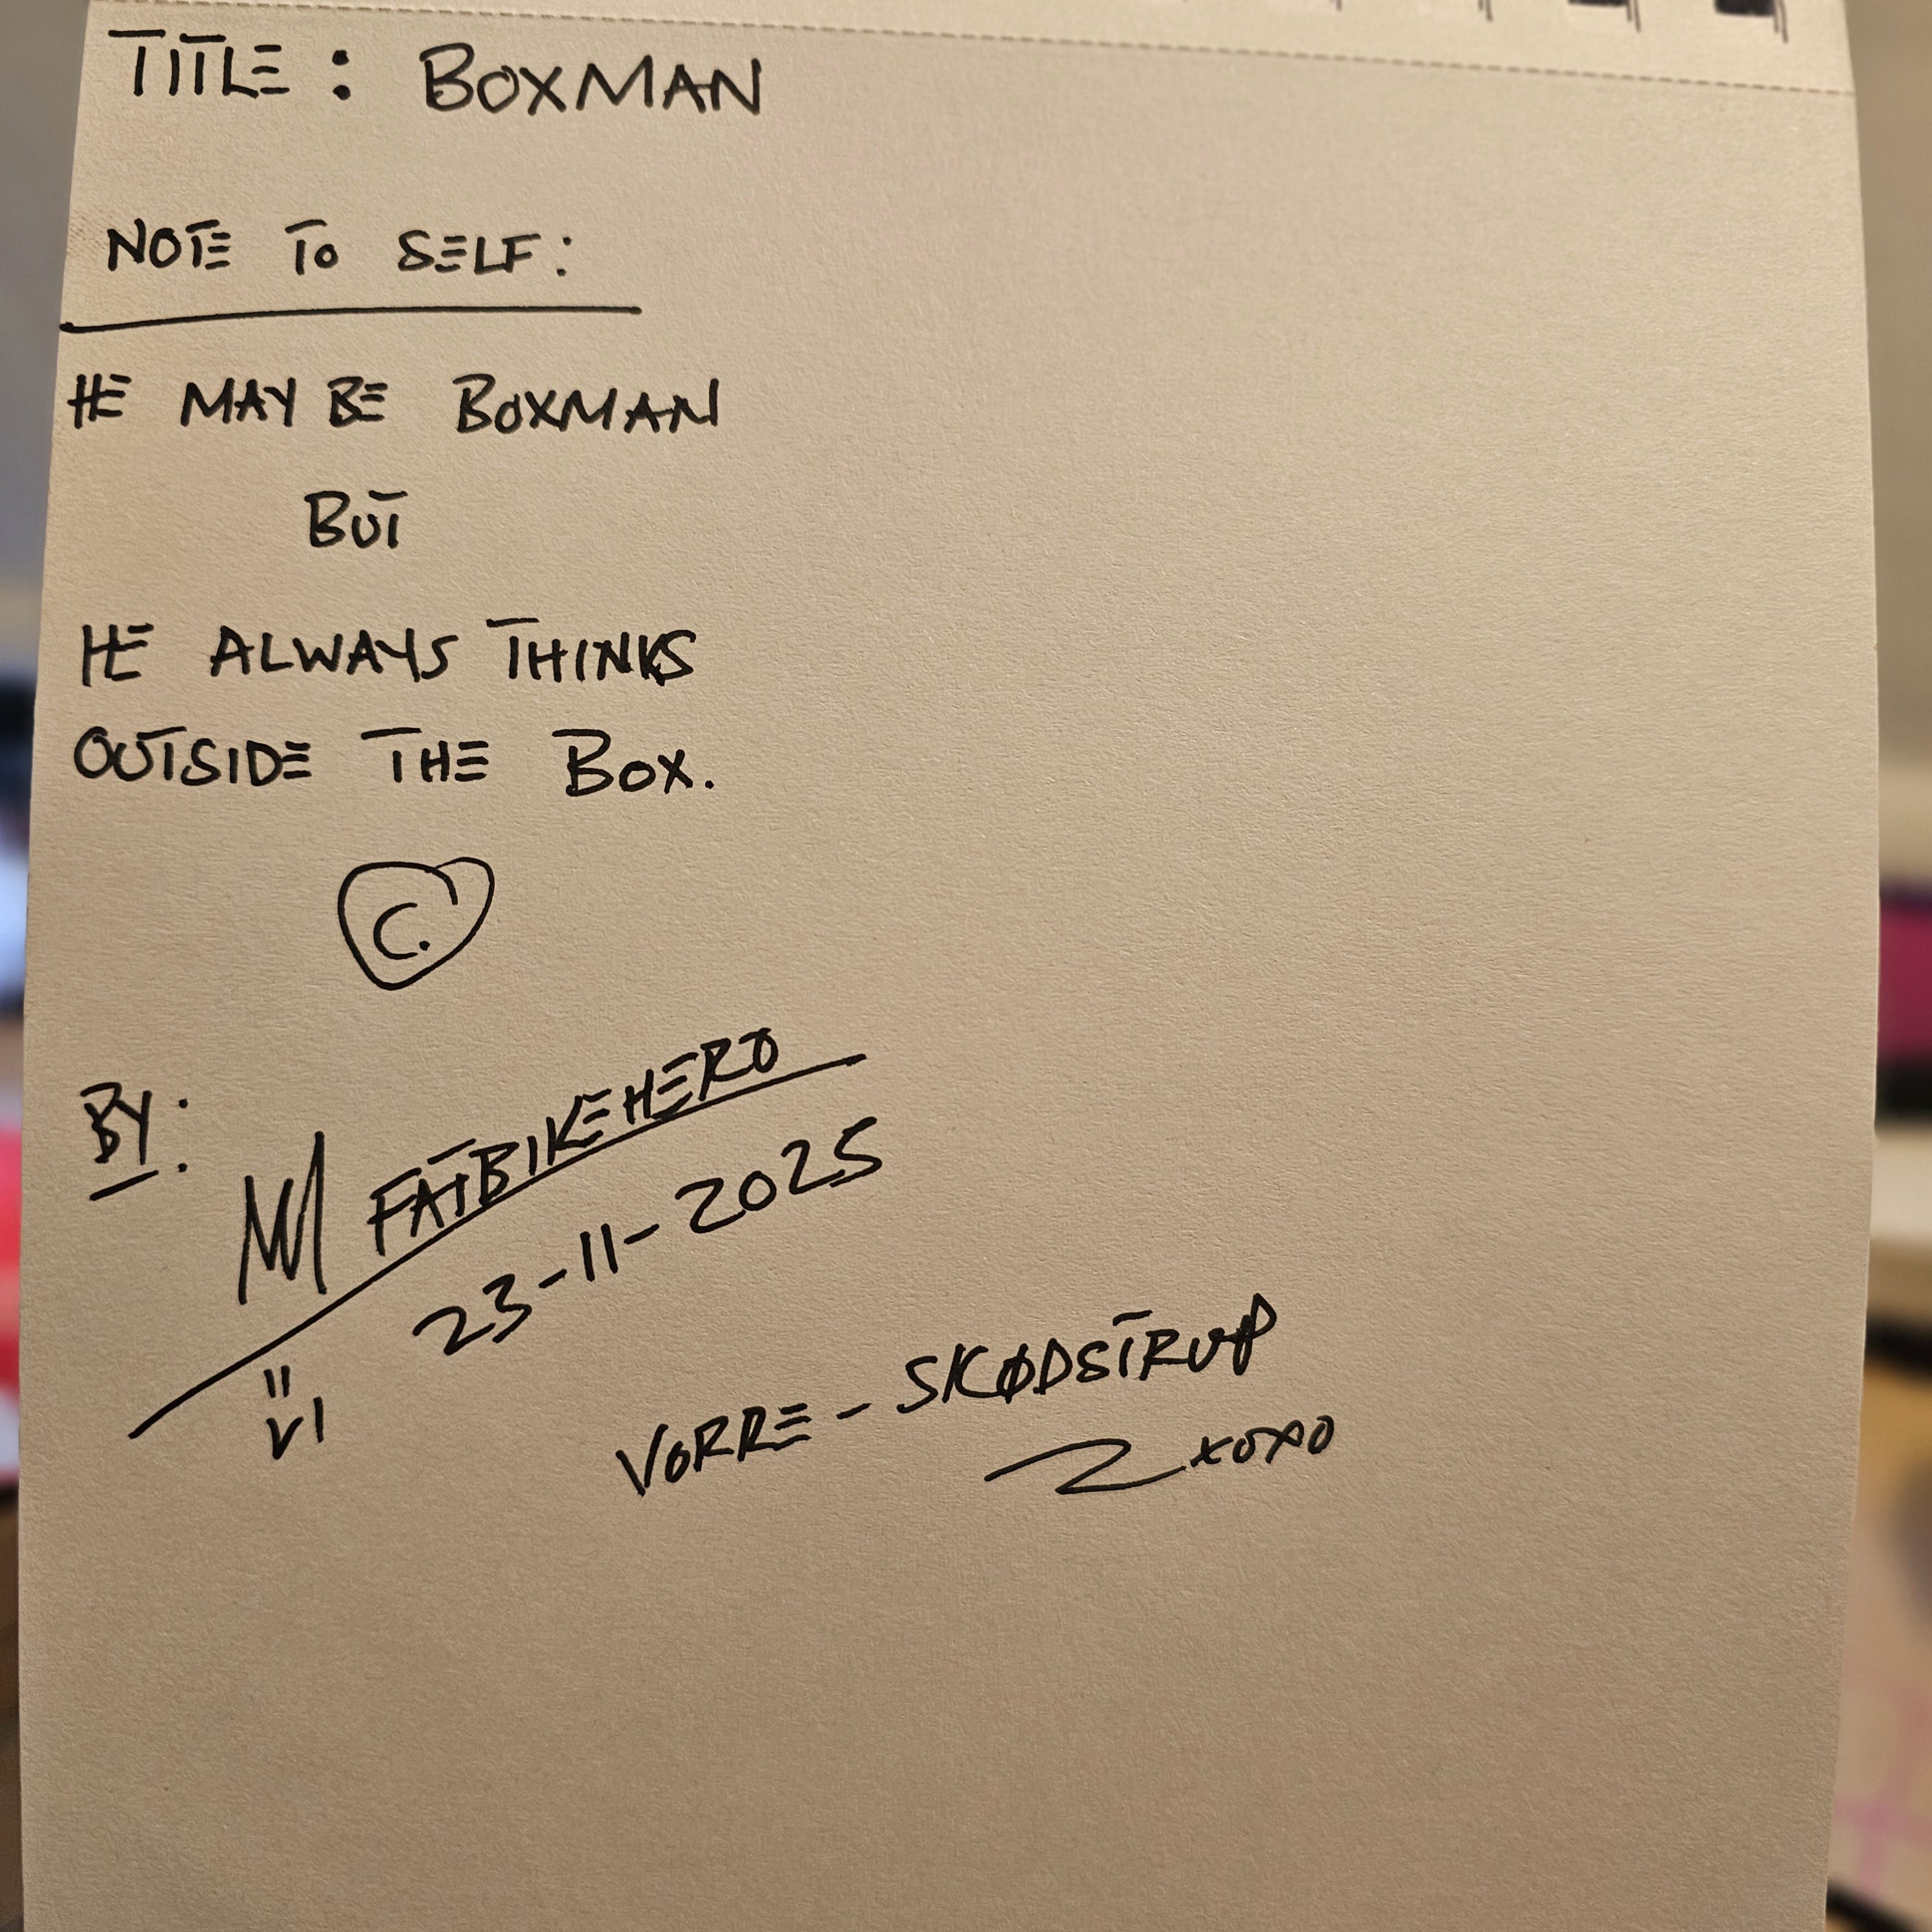 TITLE: BOXMAN
NOTE TO SELF:
HE MAY BE BOXMAN
BUT
HE ALWAYS THINKS
OUTSIDE THE BOX.
C.
BY:
FATBIKEHERO
23-11-2025
VORRE-SKØDSTRUP
xoxo